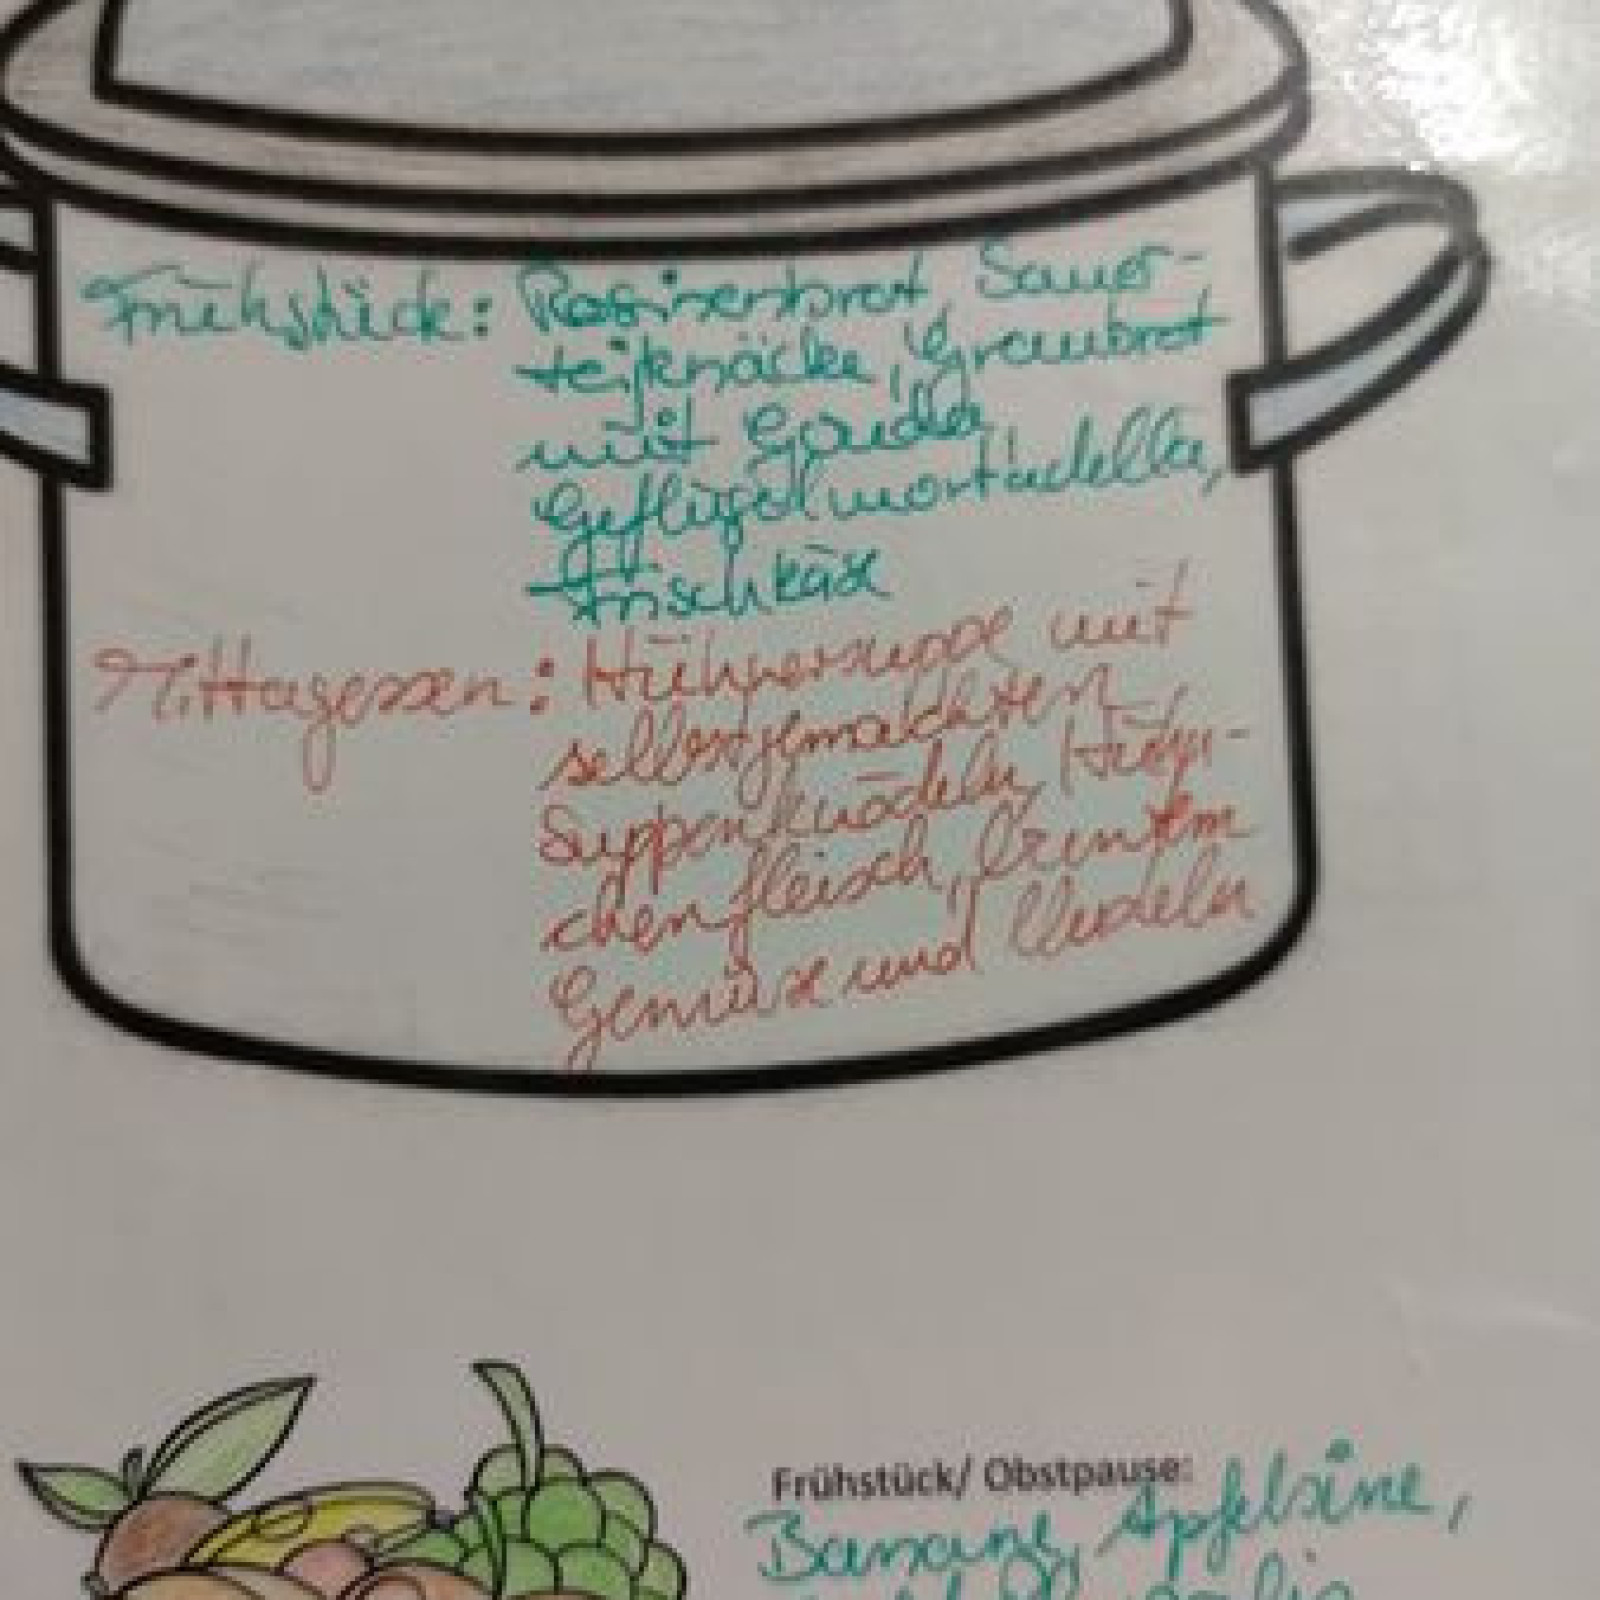 Frühstück: Rosinenbrot, Sauer-
teigknäcke, Graubrot
mit Gouda,
Geflügelmortadella,
Frischkäse
Mittagessen: Hühnersuppe mit
selbstgemachten
Suppenknödeln, Hühn-
chenfleisch, buntem
Gemüse und Nudeln
Frühstück/ Obstpause:
Banane, Apfelsine,